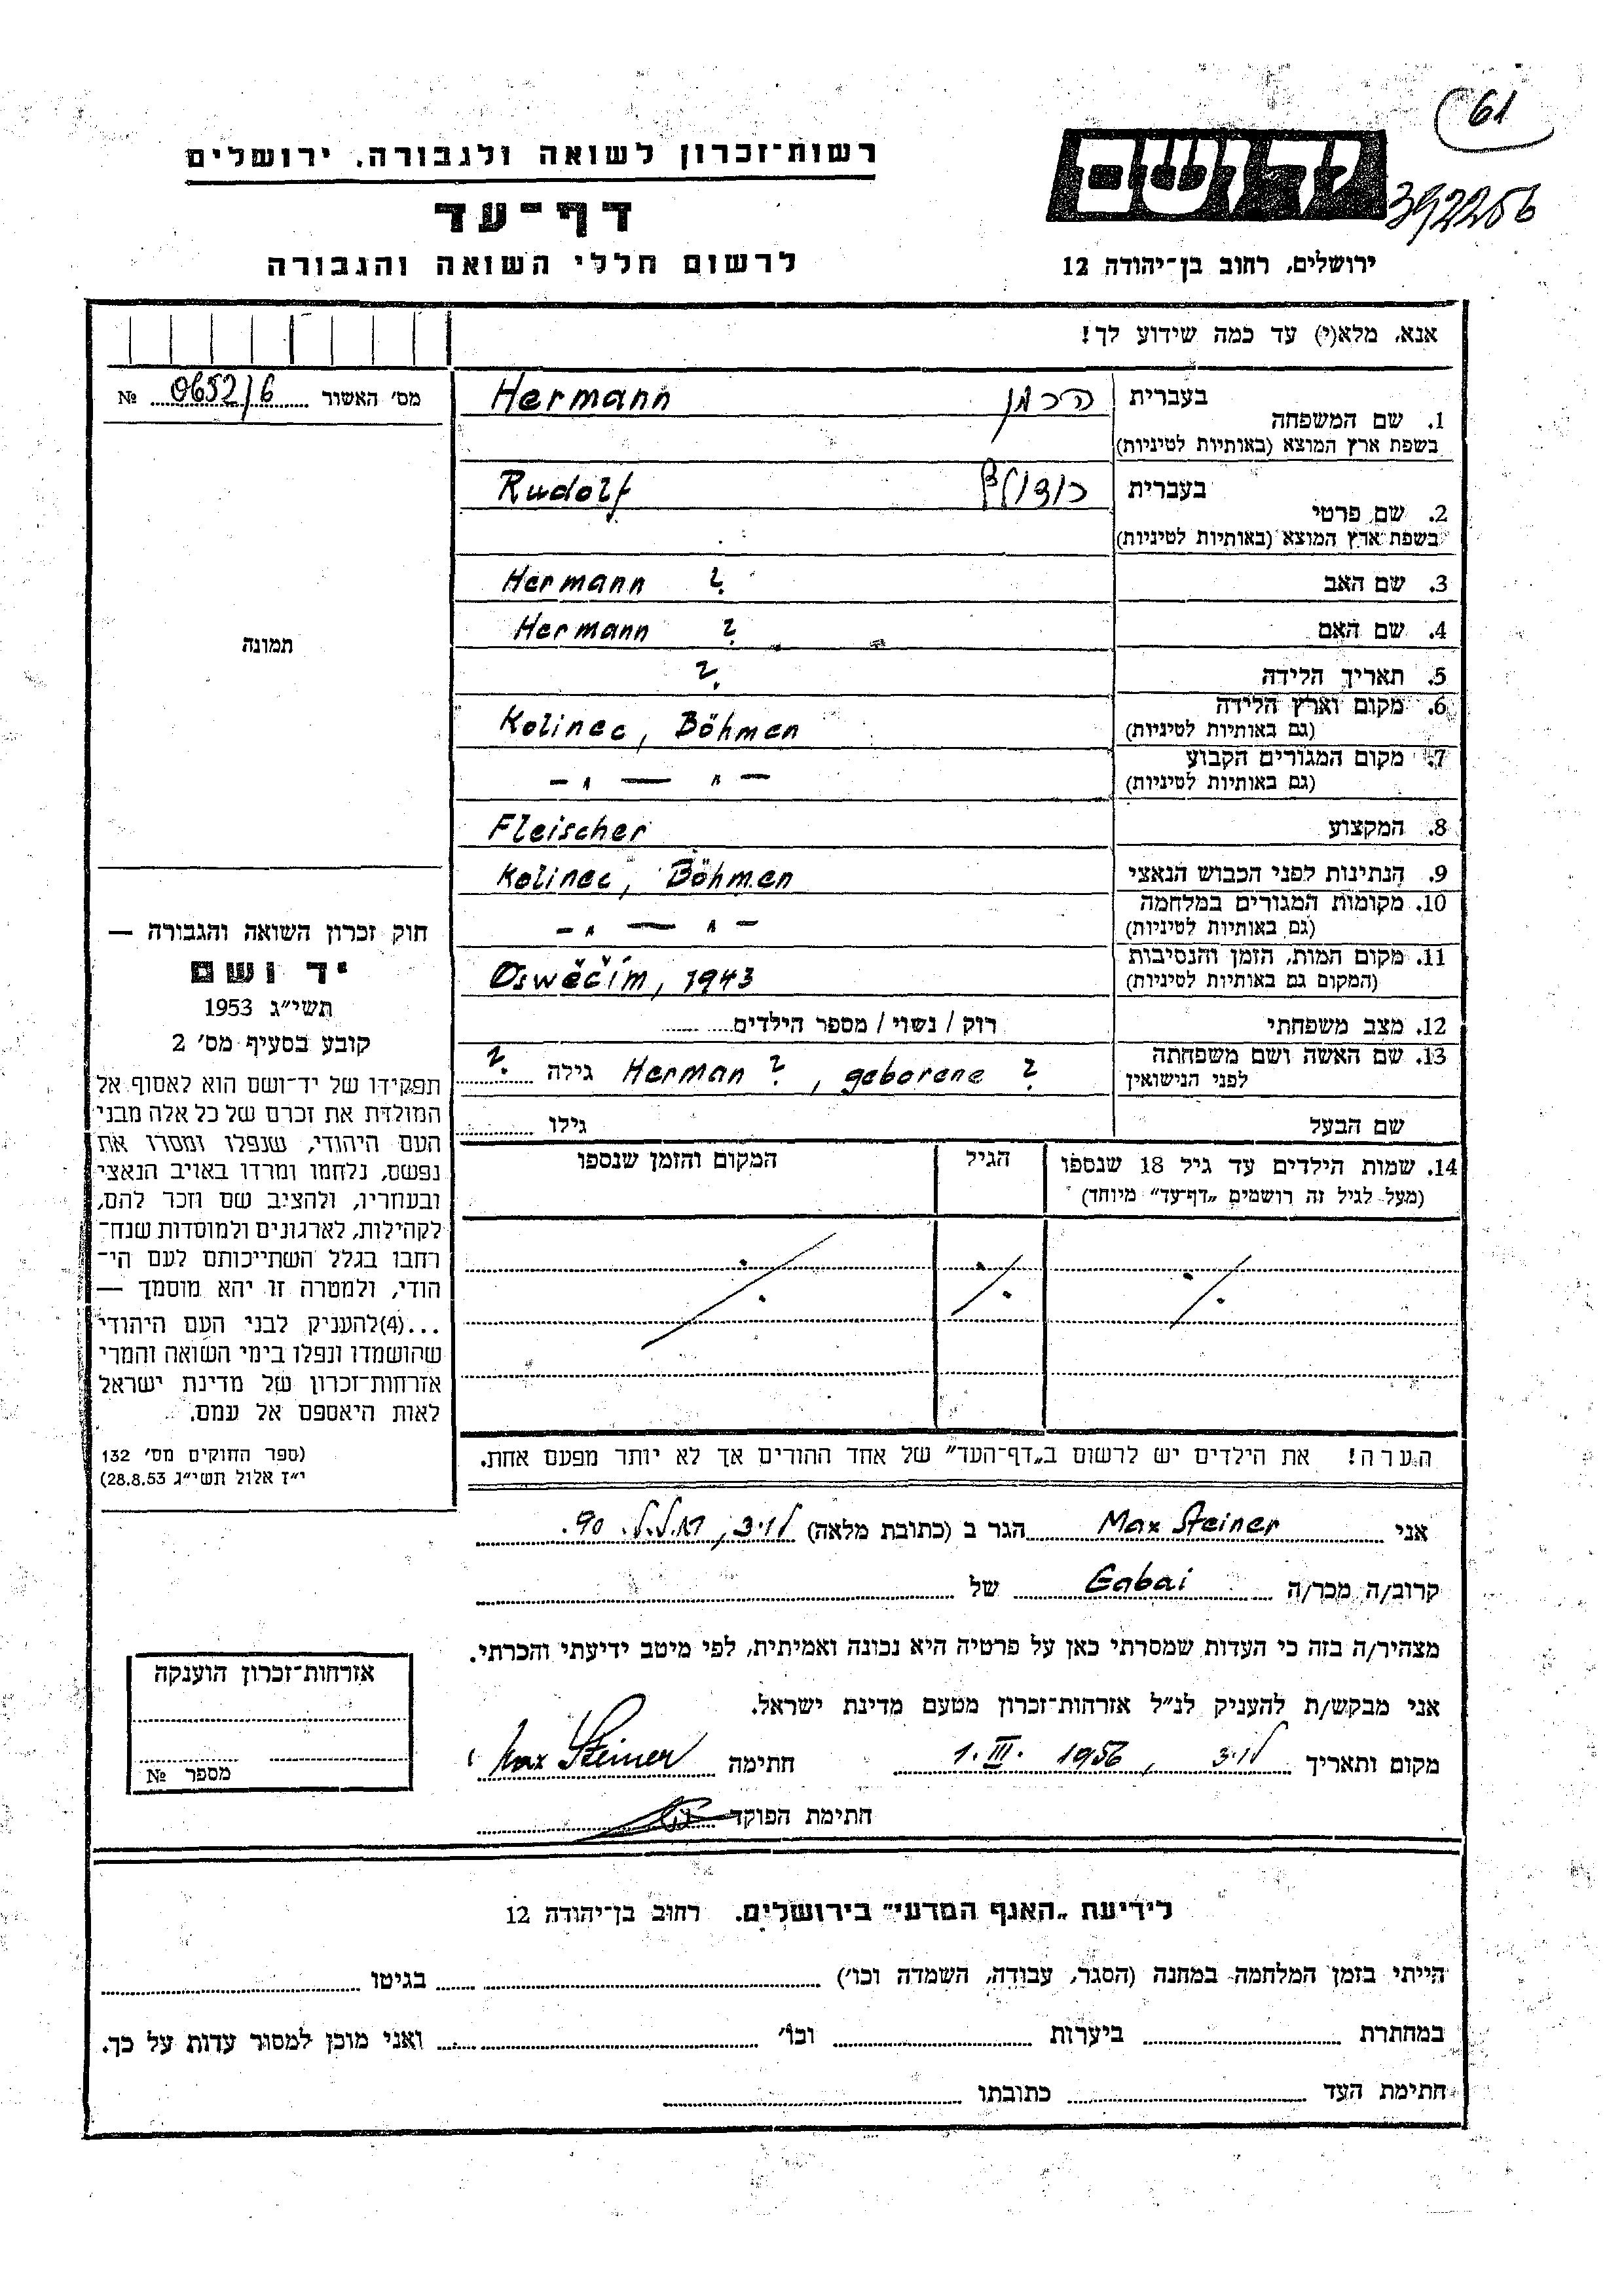 61
יד ושם
392256
רשות־זכרון לשואה ולגבורה, ירושלים
דף־עד
לרשום חללי השואה והגבורה
ירושלים, רחוב בן־יהודה 12
אנא, מלא(י) עד כמה שידוע לך!
מס' האשור 0652/6 №
בעברית הרמן Hermann
1. שם המשפחה
בשפת ארץ המוצא (באותיות לטיניות)
בעברית רודולף Rudolf
2. שם פרטי
בשפת ארץ המוצא (באותיות לטיניות)
3. שם האב Hermann ?
4. שם האם Hermann ?
5. תאריך הלידה ?
6. מקום וארץ הלידה
(גם באותיות לטיניות) Kolinec, Böhmen
7. מקום המגורים הקבוע
(גם באותיות לטיניות) — " — " —
8. המקצוע Fleischer
9. הנתינות לפני הכבוש הנאצי Kolinec, Böhmen
10. מקומות המגורים במלחמה
(גם באותיות לטיניות) — " — " —
11. מקום המות, הזמן והנסיבות
(המקום גם באותיות לטיניות) Oswěčim, 1943
12. מצב משפחתי רוק / נשוי / מספר הילדים
13. שם האשה ושם משפחתה
לפני הנישואין Herman ?, geborene ? גילה ?
שם הבעל גילו
14. שמות הילדים עד גיל 18 שנספו
(מעל לגיל זה רושמים „דף־עד" מיוחד)
הגיל
המקום והזמן שנספו
הערה! את הילדים יש לרשום ב„דף־העד" של אחד ההורים אך לא יותר מפעם אחת.
תמונה
חוק זכרון השואה והגבורה —
יד ושם
תשי"ג 1953
קובע בסעיף מס' 2
תפקידו של יד־ושם הוא לאסוף אל
המולדת את זכרם של כל אלה מבני
העם היהודי, שנפלו ומסרו את
נפשם, נלחמו ומרדו באויב הנאצי
ובעוזריו, ולהציב שם וזכר להם,
לקהילות, לארגונים ולמוסדות שנח־
רחבו בגלל השתייכותם לעם הי־
הודי, ולמטרה זו יהא מוסמך —
...(4)להעניק לבני העם היהודי
שהושמדו ונפלו בימי השואה והמרי
אזרחות־זכרון של מדינת ישראל
לאות היאספם אל עמם.
(ספר החוקים מס' 132
י"ז אלול תשי"ג 28.8.53)
אני Max Steiner הגר ב (כתובת מלאה) 90.
קרוב/ה מכר/ה Gabai של
מצהיר/ה בזה כי העדות שמסרתי כאן על פרטיה היא נכונה ואמיתית, לפי מיטב ידיעתי והכרתי.
אני מבקש/ת להעניק לנ"ל אזרחות־זכרון מטעם מדינת ישראל.
מקום ותאריך 1. III. 1956 חתימה Max Steiner
חתימת הפוקד
אזרחות־זכרון הוענקה
מספר №
לידיעת „האגף המדעי" בירושלים. רחוב בן־יהודה 12
הייתי בזמן המלחמה במחנה (הסגר, עבודה, השמדה וכו') בגיטו
במחתרת ביערות וכו' ואני מוכן למסור עדות על כך.
חתימת העד כתובתו